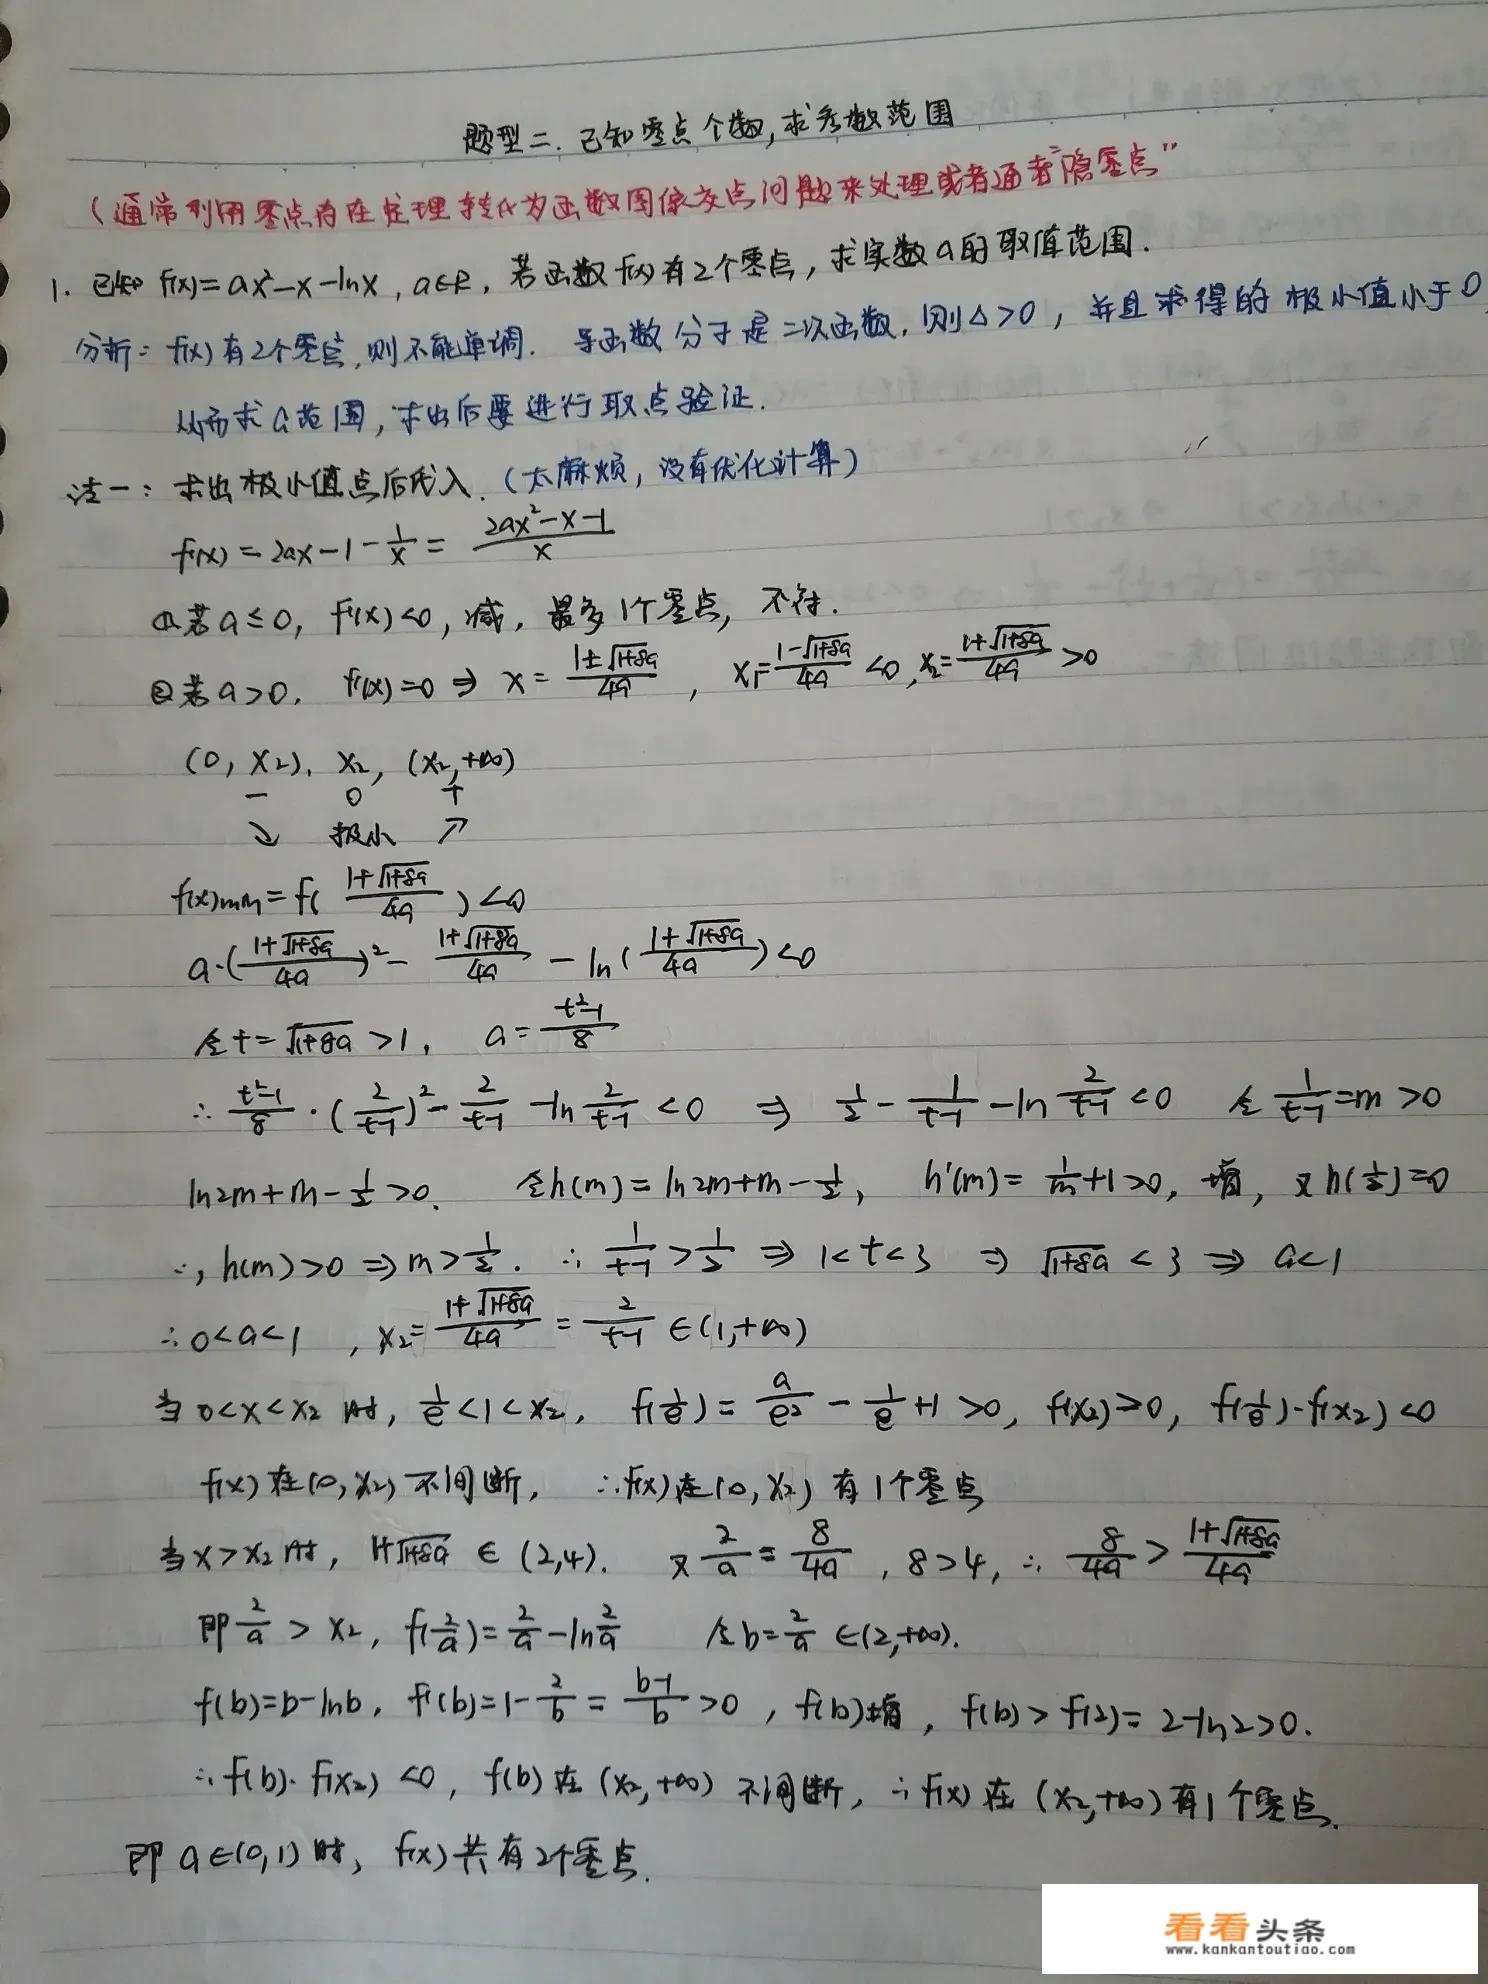 题型二.已知零点个数,求参数范围
(通常利用零点存在定理转化为函数图像交点问题来处理或者通者"隐零点"
1. 已知 f(x)=ax²-x-lnx, a∈R, 若函数f(x)有2个零点, 求实数a的取值范围.
分析: f(x)有2个零点,则不能单调. 导函数分子是二次函数,则△>0, 并且求得的极小值小于0
从而求a范围, 求出后要进行取点验证.
法一: 求出极小值点后代入.(太麻烦,没有优化计算)
f'(x)=2ax-1-1/x=(2ax²-x-1)/x
①若a≤0, f'(x)<0, 减, 最多1个零点, 不符.
②若a>0, f'(x)=0 ⇒ x=(1±√(1+8a))/4a, x₁=(1-√(1+8a))/4a<0, x₂=(1+√(1+8a))/4a>0
(0, x₂), x₂, (x₂,+∞)
- 0 +
↘ 极小 ↗
f(x)min=f((1+√(1+8a))/4a)<0
a·((1+√(1+8a))/4a)²-(1+√(1+8a))/4a-ln((1+√(1+8a))/4a)<0
令t=√(1+8a)>1, a=(t²-1)/8
∴(t²-1)/8·(2/(t-1))²-2/(t-1)-ln 2/(t-1)<0 ⇒ 1/2-1/(t-1)-ln 2/(t-1)<0 令1/(t-1)=m>0
ln2m+m-1/2>0. 令h(m)=ln2m+m-1/2, h'(m)=1/m+1>0, 增, 又h(1/2)=0
∴, h(m)>0⇒m>1/2. ∴1/(t-1)>1/2 ⇒ 1<t<3 ⇒ √(1+8a)<3 ⇒ a<1
∴0<a<1, x₂=(1+√(1+8a))/4a=2/(t-1)∈(1,+∞)
当0<x<x₂时, 1/e<1<x₂, f(1/e)=a/e²-1/e+1>0, f(x₂)>0, f(1/e)·f(x₂)<0
f(x)在(0,x₂)不间断, ∴f(x)在(0,x₂)有1个零点
当x>x₂时, 1+√(1+8a)∈(2,4). 又2/a=8/4a, 8>4, ∴8/4a>(1+√(1+8a))/4a
即2/a>x₂, f(2/a)=2/a-ln2/a 令b=2/a∈(2,+∞).
f(b)=b-lnb, f'(b)=1-2/b=(b-1)/b>0, f(b)增, f(b)>f(2)=2-ln2>0.
∴f(b)·f(x₂)<0, f(b)在(x₂,+∞)不间断, ∴f(x)在(x₂,+∞)有1个零点.
即a∈(0,1)时, f(x)共有2个零点.
看看头条
www.kankantoutiao.com